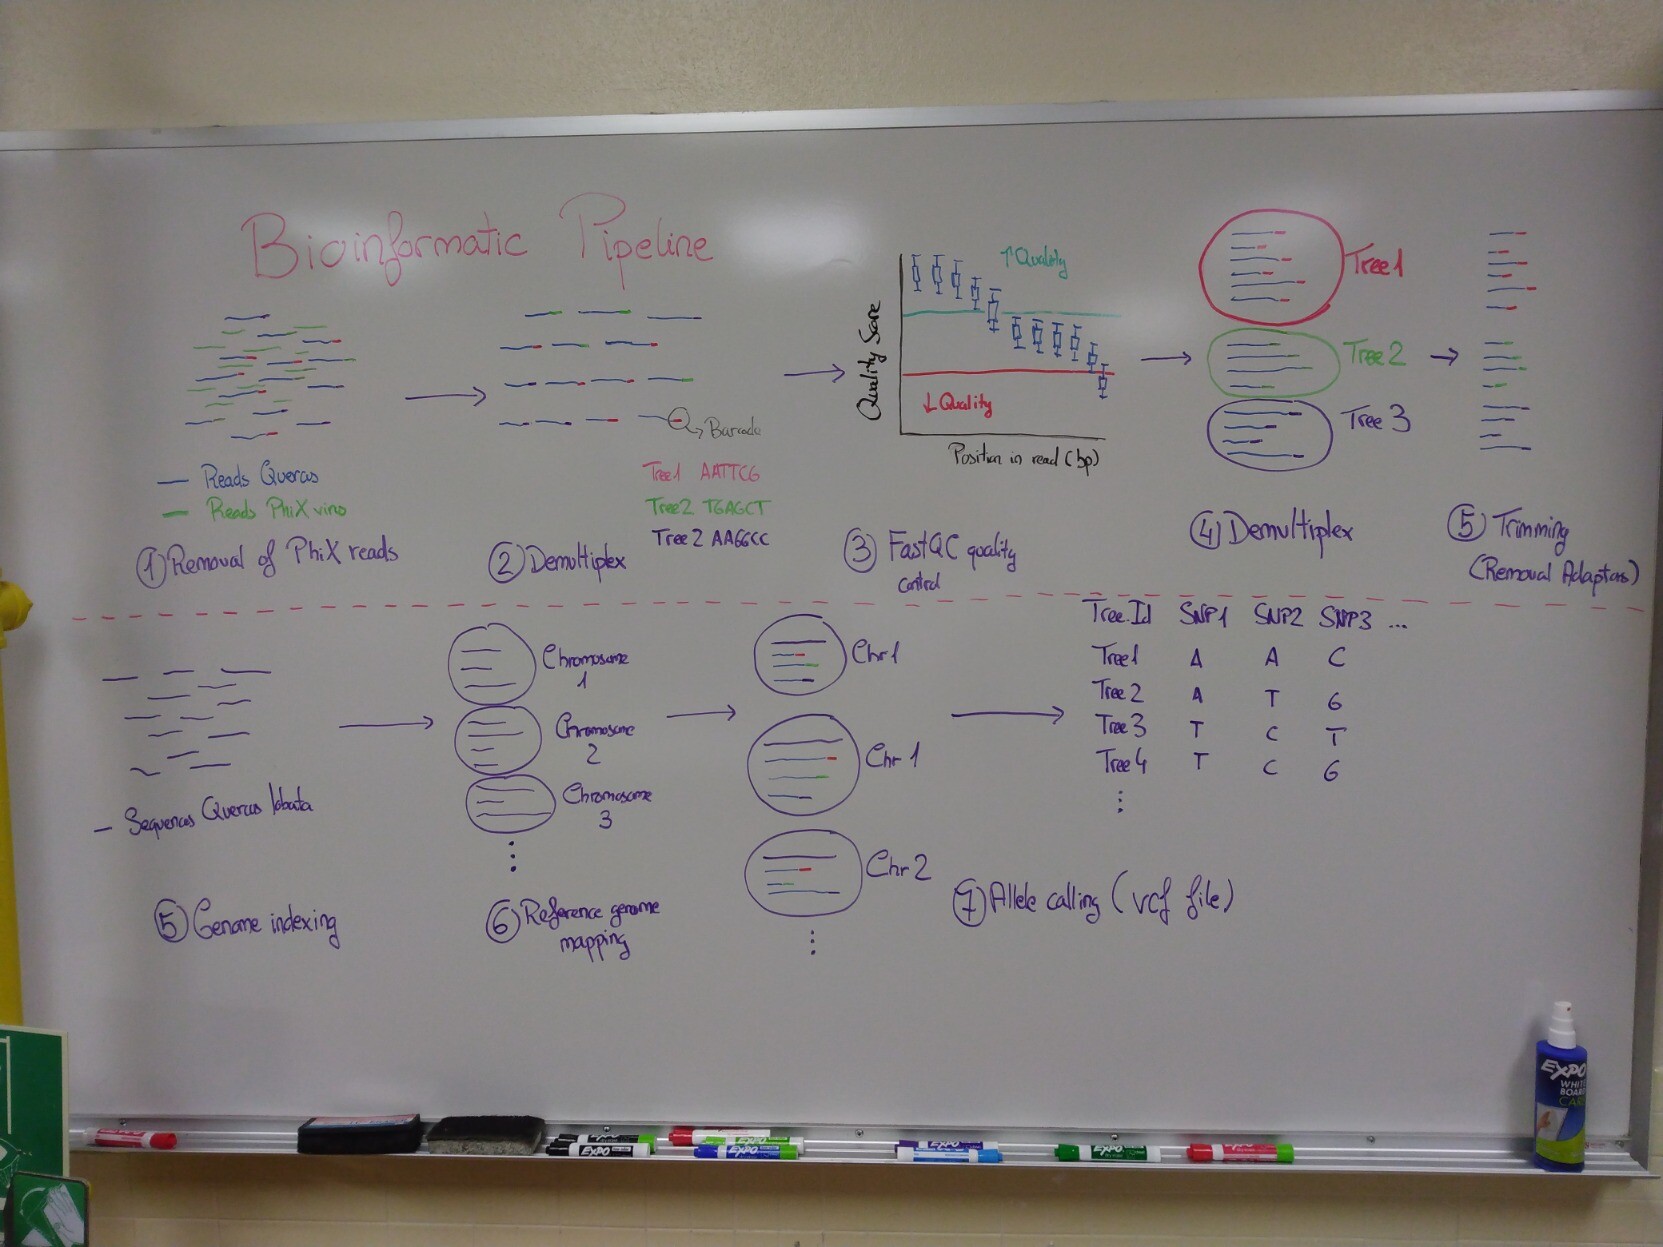 Bioinformatic Pipeline
Reads Quercus
Reads PhiX virus
① Removal of PhiX reads
Barcode
Tree1 AATTCG
Tree2 TGAGCT
Tree2 AAGGCC
② Demultiplex
Quality Score
↑Quality
↓Quality
Position in read (bp)
③ FastQC quality
control
Tree1
Tree2
Tree 3
④ Demultiplex
⑤ Trimming
(Removal Adaptors)
– Sequences Quercus lobata
⑤ Genome indexing
Chromosome
1
Chromosome
2
Chromosome
3
⑥ Reference genome
mapping
Chr1
Chr1
Chr2
Tree.Id SNP1 SNP2 SNP3 ...
Tree1 A A C
Tree2 A T G
Tree3 T C T
Tree4 T C G
⑦ Allele calling (vcf file)
EXPO
WHITE
BOARD
CARE
EXPO
EXPO
EXPO